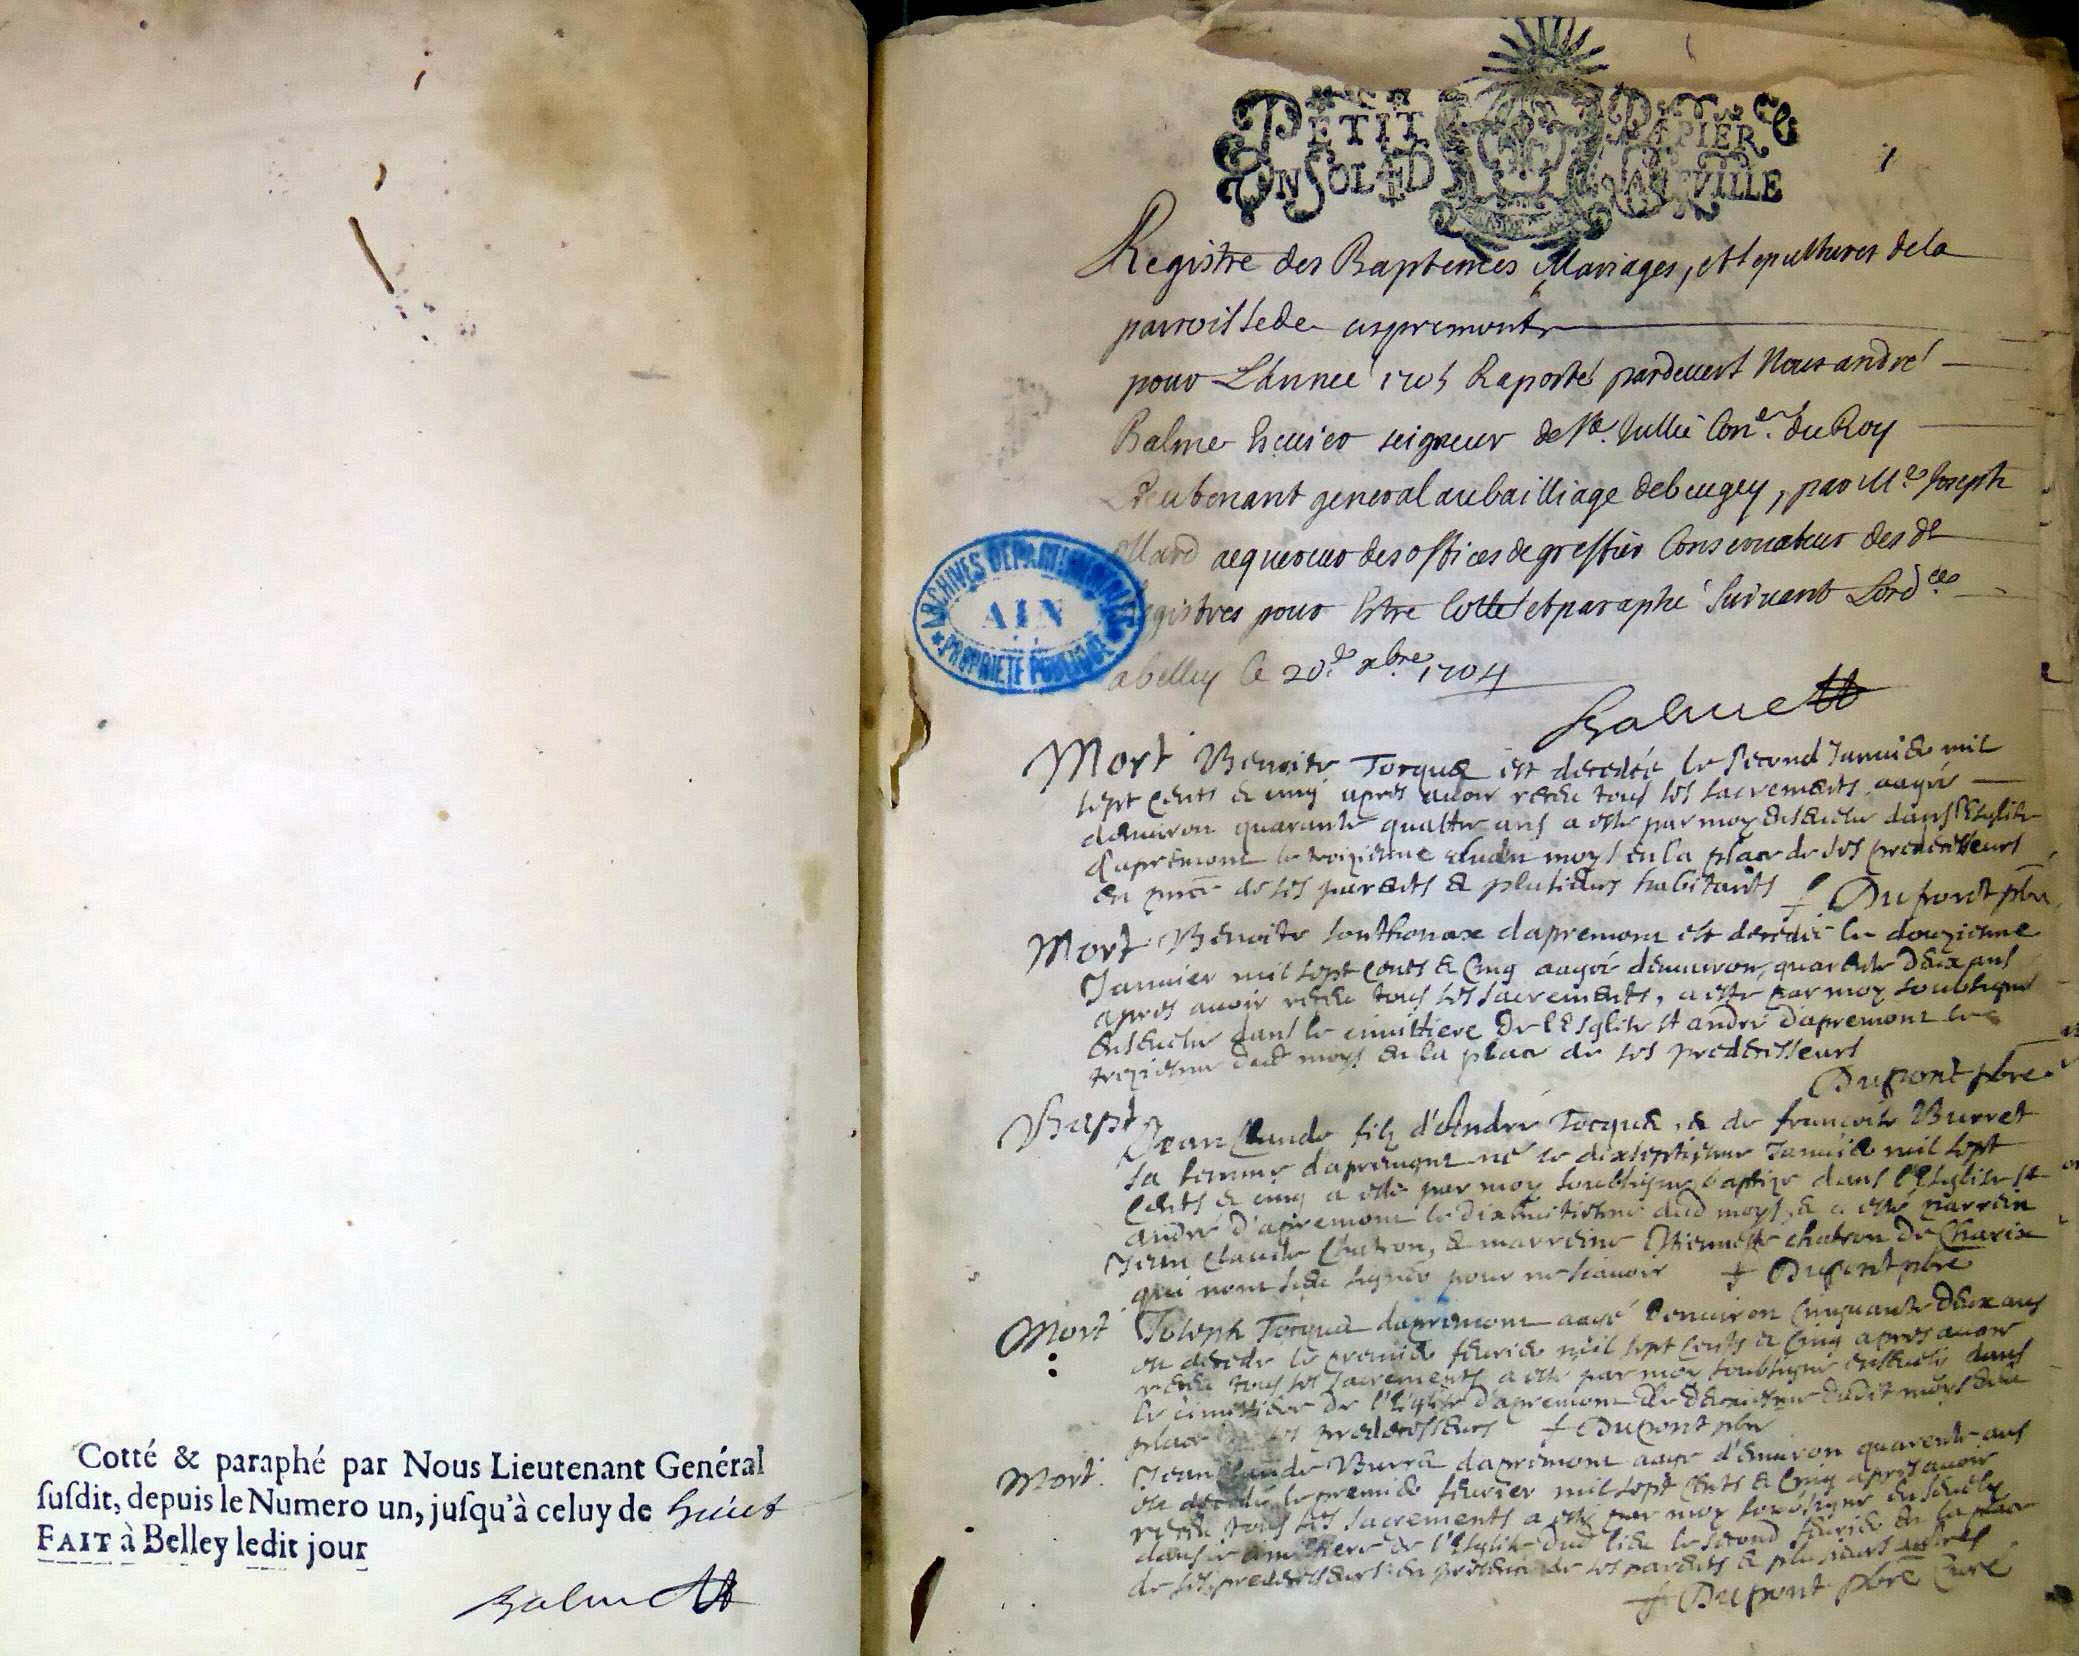 Cotté & paraphé par Nous Lieutenant Genéral
ſuſdit, depuis le Numero un, juſqu'à celuy de huict
FAIT à Belley ledit jour
Balme
PETIT PAPIER
UN SOL LE VILLE
1
Registre des Baptemes, Mariages, et sepultures de la
parroisse de aspremont
pour L'année 1705 Raporté pardevert Nous andré
Balme Escuier seigneur de Ste. Jullie Coner. du Roy
Lieutenant general au bailliage de beugey, par Me Joseph
aequereur des offices de greffier Conservateur des dt
Registres pour Estre Cotté et paraphé suivant Lordce
a belley le 20e xbre 1704
Balme
ARCHIVES DEPARTEMENTALES
AIN
PROPRIETE PUBLIQUE
Mort Benoite Torque est decedée le second Januier mil
sept cents & cinq apres auoir receu tous ses sacrements aagée
denuiron quarante quattre ans a esté par moy enseuelie dans l'Esglise
d'apremont le troizieme dudit moys en la place de ses predecesseurs
en pnce de ses parents & plusieurs habitants Dupont pbre
Mort Benoite Sonthonax dapremont est decedée le douzieme
Januier mil sept cents & cinq aagée denuiron quarante deux ans
apres auoir receu tous ses sacrements, a esté par moy soubsigné
enseuelie dans le cimittiere de l'Esglise st andré d'apremont le
trezieme dudt moys en la place de ses predecesseurs
Dupont pbre
Bapt Jean Claude filz d'André Tocque & de françoise Burret
sa femme d'apremont né le dixseptieme Januier mil sept
cents & cinq a esté par moy soubsigné baptizé dans l'Esglise st
andré d'apremont le dixhuitieme dud moys, & a esté parrein
Jean Claude Chatron, & marreine Estiennette chatron de Charix
qui nont sceu signer pour ne scauoir Dupont pbre
Mort Joseph Tocque dapremont aagé denuiron cinquante deux ans
est decedé le premier feurier mil sept cents & cinq apres auoir
receu tous ses sacrements a esté par moy soubsigné enseueli dans
le cimittiere de l'Esglise d'apremont le deuxieme dudit moys en la
place de ses predecesseurs Dupont pbre
Mort Jean Claude Burre dapremont aagé d'enuiron quarente ans
est decedé le premier feurier mil sept cents & cinq apres auoir
receu tous ses sacrements a esté par moy soubsigné enseuely
dans le cimittiere de l'Esglise dud lieu le second feurier en la place
de ses predecesseurs en presence de ses parents & plusieurs autres
Dupont pbre Curé